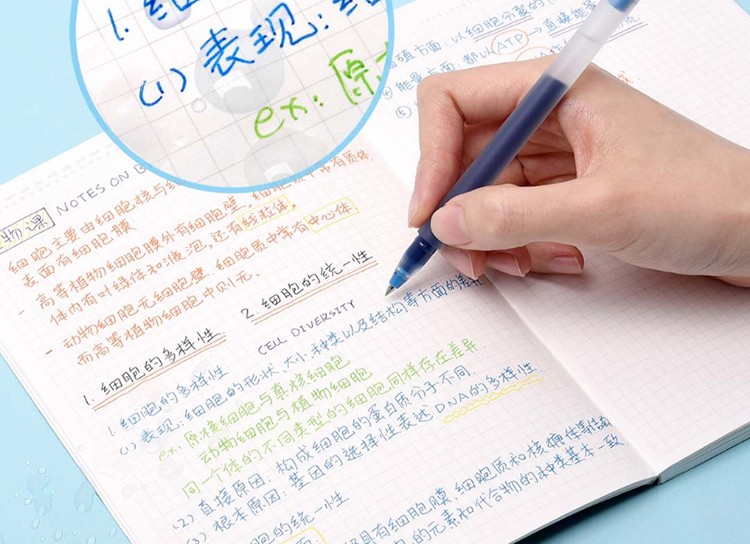 1. 细
(1) 表现:
ex: 原
以细胞分裂的
能量方面: 都以ATP → 直接能
物课 NOTES ON
细胞主要由细胞核与
表面有细胞膜
- 高等植物细胞膜外有细胞壁, 细胞质中常有质体,
体内有叶绿体和液泡, 还有线粒体.
- 动物细胞无细胞壁, 细胞质中常有中心体
而高等植物细胞中则无.
1. 细胞的多样性 2. 细胞的统一性
CELL DIVERSITY
1. 细胞的多样性
(1) 表现: 细胞的形状、大小、种类以及结构等方面的差异
ex: 原核细胞与真核细胞
动物细胞与植物细胞
同一个体的不同类型的细胞同样存在差异
(2) 直接原因: 构成细胞的蛋白质分子不同
(3) 根本原因: 基因的选择性表述 DNA的多样性
胞的统一性
具有细胞膜, 细胞质和核糖体等结构
的元素和化合物的种类基本一致